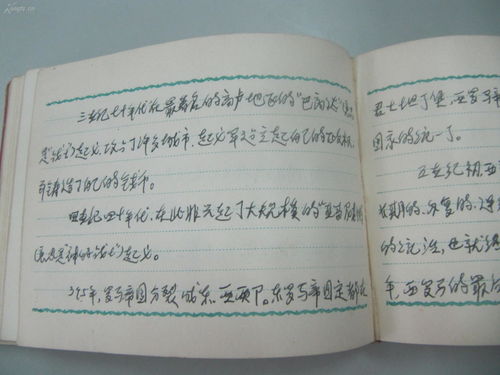 三世纪七十年代在最著名的高卢地区的"巴高达"
意战士)起义,攻占了许多城市,起义军建立起自己的政权机
并铸造了自己的钱币。
四世纪四十年代,在北非兴起了大规模的"亚哥尼斯
(意思是神的战士)起义。
395年,罗马帝国分裂成东、西两部。东罗马帝国定都在
君士坦丁堡,西罗马帝
国家的统一了。
五世纪初,西
长期的、反复的、
年,西罗马的最后